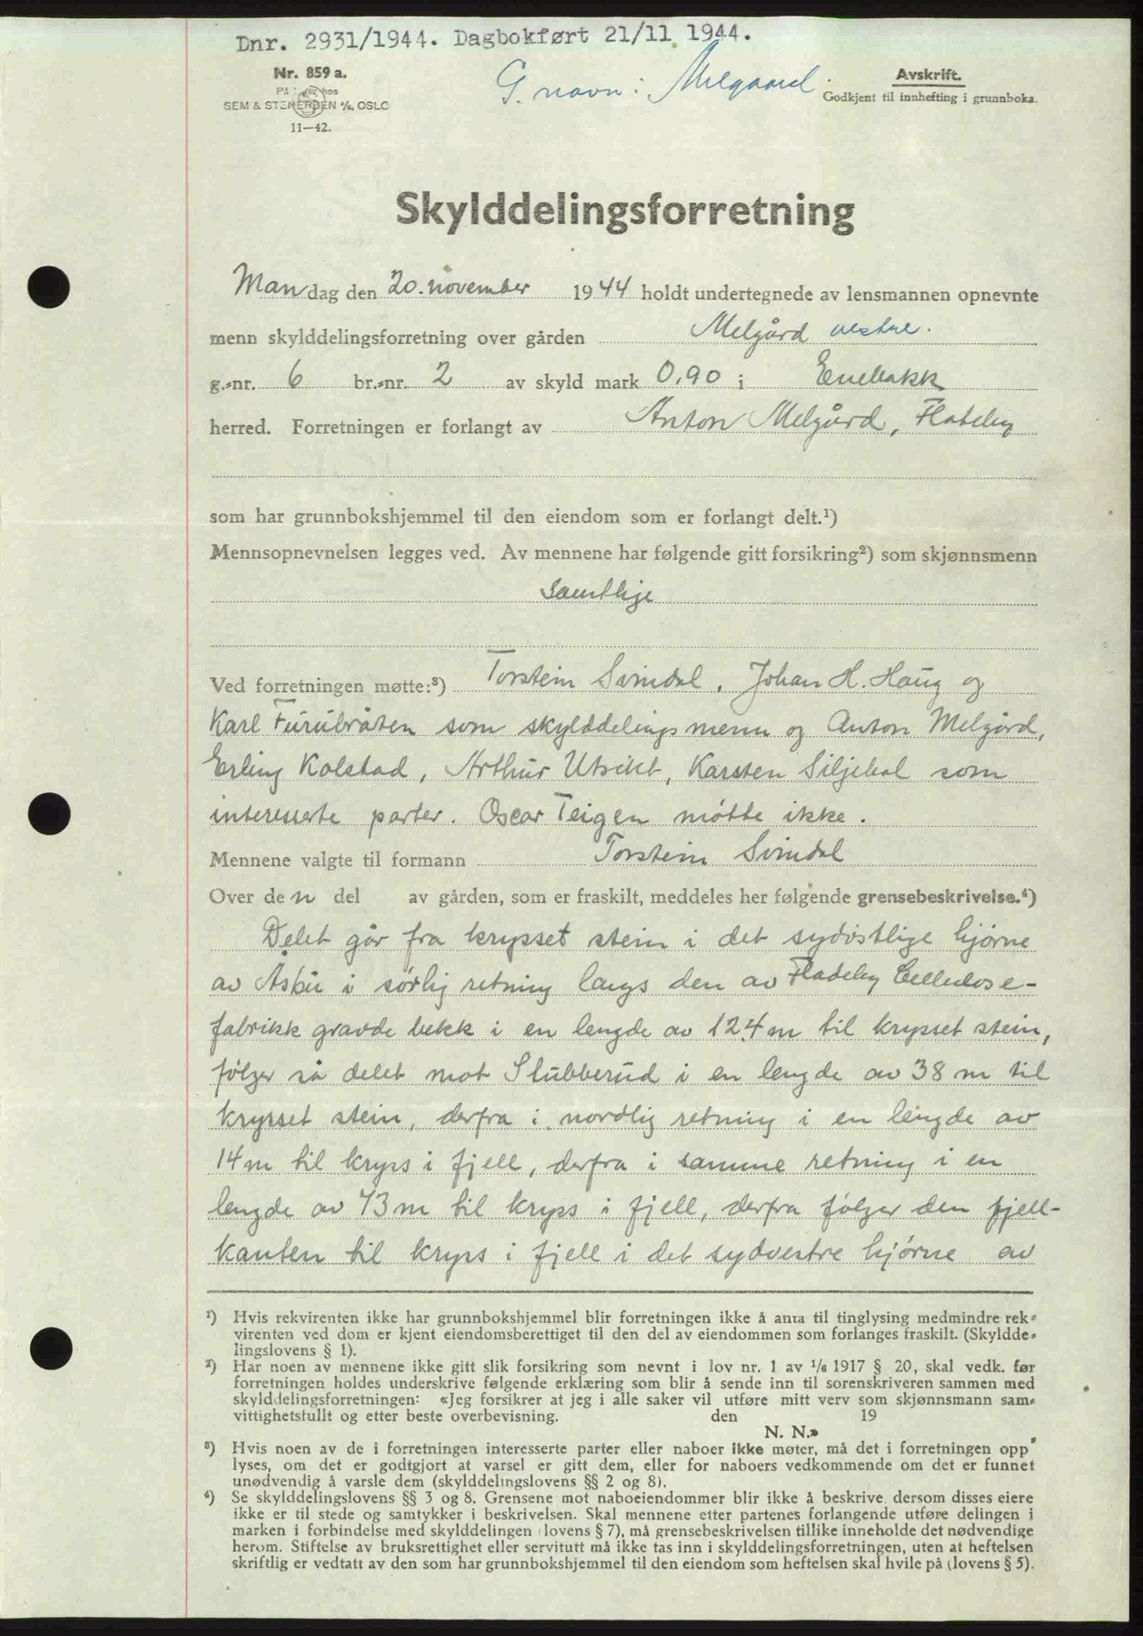 Dnr. 2931/1944. Dagbokført 21/11 1944.
G. navn: Melgaard.
Nr. 859 a.
SEM & STENERSEN A/S, OSLO
11—42.
Avskrift.
Godkjent til innhefting i grunnboka.
Skylddelingsforretning
Mandag den 20. november 1944 holdt undertegnede av lensmannen opnevnte
menn skylddelingsforretning over gården Melgård vestre.
g.-nr. 6 br.-nr. 2 av skyld mark 0,90 i Enebakk
herred. Forretningen er forlangt av Anton Melgård, Flateby
som har grunnbokshjemmel til den eiendom som er forlangt delt.¹)
Mennsopnevnelsen legges ved. Av mennene har følgende gitt forsikring²) som skjønnsmenn
samtlige
Ved forretningen møtte:³) Torstein Svindal, Johan H. Haug og
Karl Furubråten som skylddelingsmenn og Anton Melgård,
Erling Kolstad, Arthur Utsikt, Karsten Siljebol som
interesserte parter. Oscar Teigen møtte ikke.
Mennene valgte til formann Torstein Svindal
Over den del av gården, som er fraskilt, meddeles her følgende grensebeskrivelse.⁴)
Delet går fra krysset stein i det sydøstlige hjørne
av Asbu i sørlig retning langs den av Fladeby Cellulose-
fabrikk gravde bekk i en lengde av 124 m til krysset stein,
følger så delet mot Slubberud i en lengde av 38 m til
krysset stein, derfra i nordlig retning i en lengde av
14 m til kryss i fjell, derfra i samme retning i en
lengde av 73 m til kryss i fjell, derfra følger den fjell-
kanten til kryss i fjell i det sydvestre hjørne av
¹) Hvis rekvirenten ikke har grunnbokshjemmel blir forretningen ikke å anta til tinglysing medmindre rek-
virenten ved dom er kjent eiendomsberettiget til den del av eiendommen som forlanges fraskilt. (Skyldde-
lingslovens § 1).
²) Har noen av mennene ikke gitt slik forsikring som nevnt i lov nr. 1 av 1/6 1917 § 20, skal vedk. før
forretningen holdes underskrive følgende erklæring som blir å sende inn til sorenskriveren sammen med
skylddelingsforretningen: «Jeg forsikrer at jeg i alle saker vil utføre mitt verv som skjønnsmann sam-
vittighetsfullt og etter beste overbevisning. den 19
N. N.»
³) Hvis noen av de i forretningen interesserte parter eller naboer ikke møter, må det i forretningen opp-
lyses, om det er godtgjort at varsel er gitt dem, eller for naboers vedkommende om det er funnet
unødvendig å varsle dem (skylddelingslovens §§ 2 og 8).
⁴) Se skylddelingslovens §§ 3 og 8. Grensene mot naboeiendommer blir ikke å beskrive, dersom disses eiere
ikke er til stede og samtykker i beskrivelsen. Skal mennene etter partenes forlangende utføre delingen i
marken i forbindelse med skylddelingen (lovens § 7), må grensebeskrivelsen tillike inneholde det nødvendige
herom. Stiftelse av bruksrettighet eller servitutt må ikke tas inn i skylddelingsforretningen, uten at heftelsen
skriftlig er vedtatt av den som har grunnbokshjemmel til den eiendom som heftelsen skal hvile på (lovens § 5).